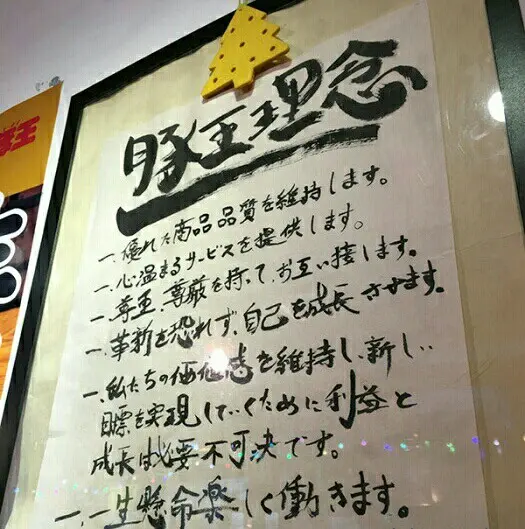 豚王理念
一、優れた商品品質を維持します。
一、心温まるサービスを提供します。
一、尊重、尊厳を持って、お互い接します。
一、革新を恐れず、自己を成長させます。
一、私たちの価値感を維持し、新しい
目標を実現していくために利益と
成長は必要不可決です。
一、一生懸命楽しく働きます。